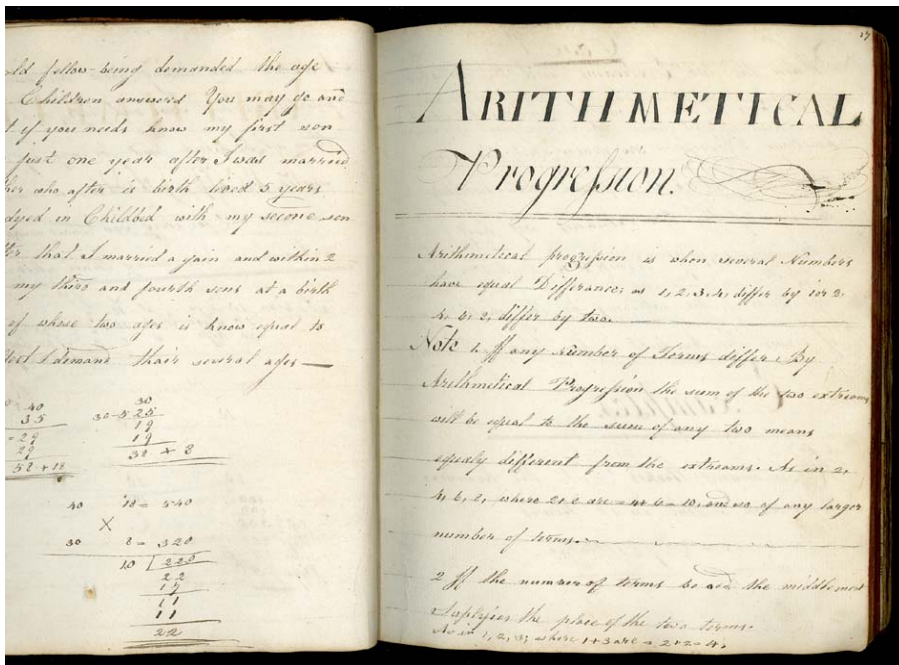 old fellow being demanded the age
Children answered You may go and
if you needs know my first son
just one year after I was married
who after is birth lived 5 years
dyed in Childbed with my second son
that I married a gain and within 2
my third and fourth sons at a birth
of whose two ages is know equal to
I demand thair several ages
40
35
29
29
58 + 18
30
30-5 25
19
19
38 + 8
40 18 = 540
X
30 8 = 320
10 220
22
19
11
11
22
17
ARITHMETICAL
Progreſsion.
Arithmetical progreſsion is when several Numbers
have equal Differance; as 1, 2, 3, 4, differ by 1 or 2,
4, 6, 8, differ by two.
Note 1. If any Number of Terms differ By
Arithmetical Progreſsion the sum of the two extreams
will be equal to the sum of any two means
equaly different from the extreams. As in 2,
4, 6, 8, where 2+8 are = 4+6 = 10, and so of any larger
number of terms.
2 If the number of terms be odd the middlemost
Suplyies the place of the two terms.
As in 1, 2, 3, where 1+3 are = 2+2 = 4.